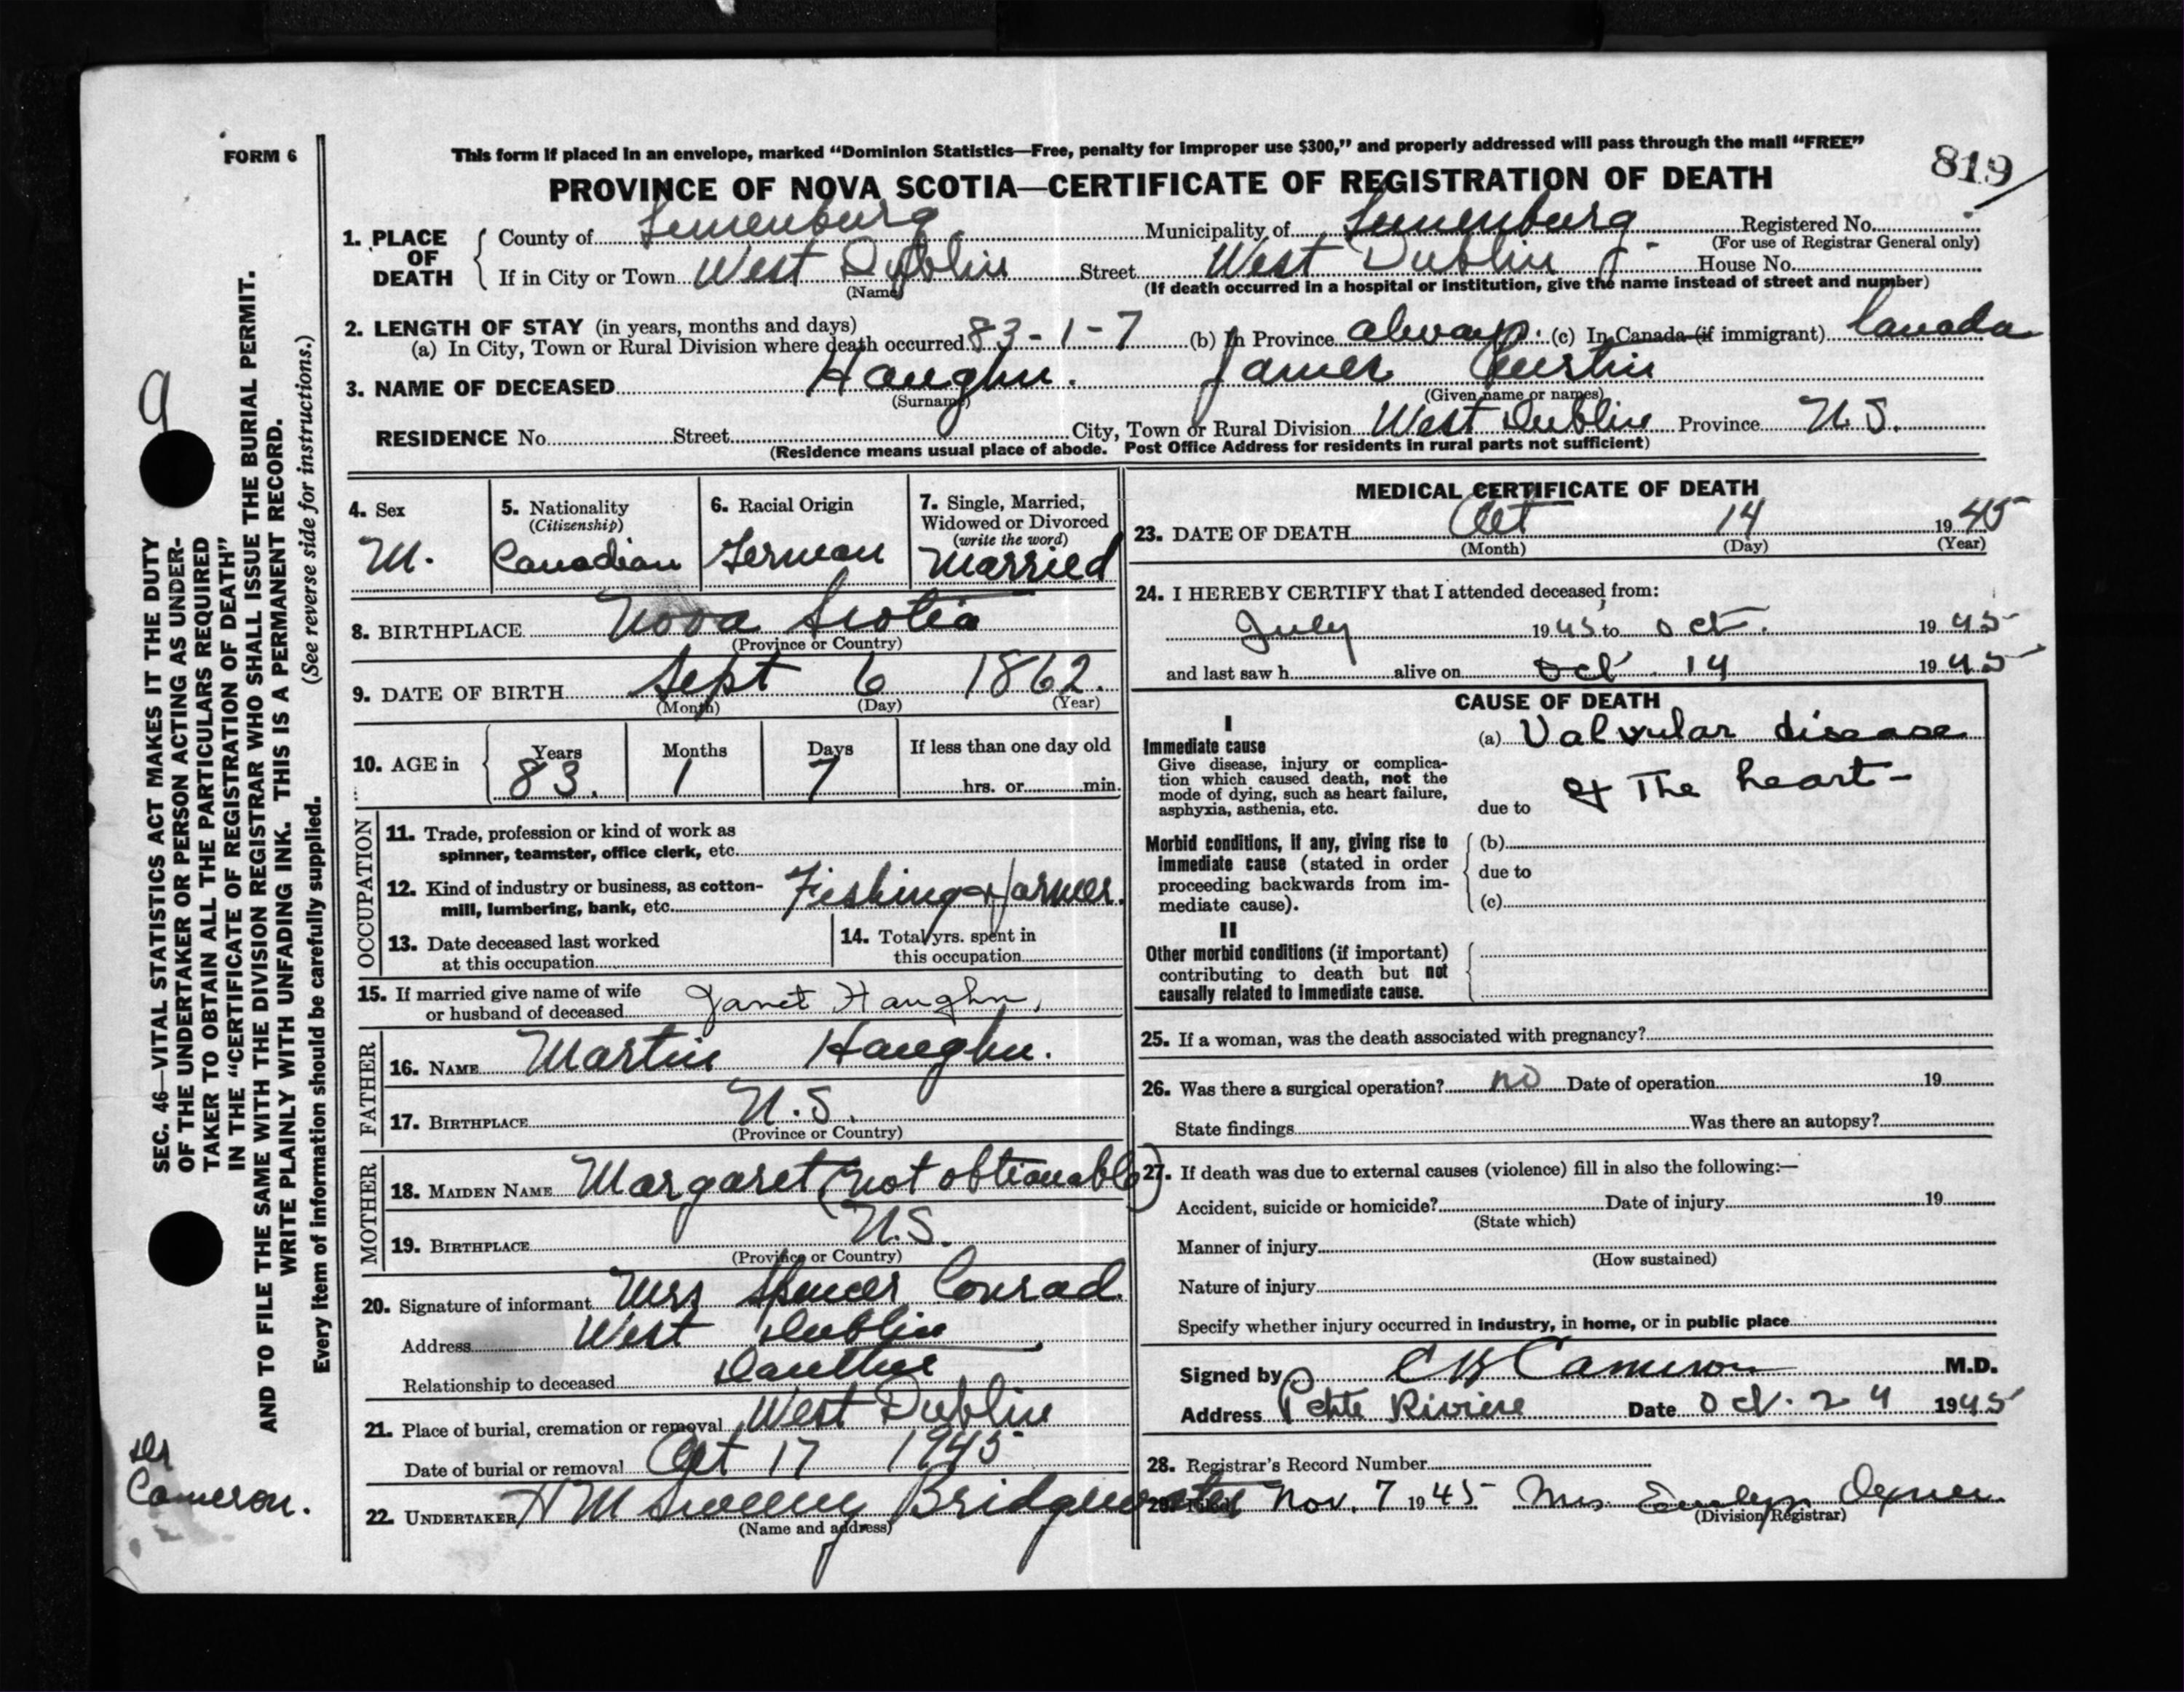 FORM 6
This form if placed in an envelope, marked “Dominion Statistics—Free, penalty for improper use $300,” and properly addressed will pass through the mail “FREE”
819
PROVINCE OF NOVA SCOTIA—CERTIFICATE OF REGISTRATION OF DEATH
1. PLACE OF DEATH
County of Lunenburg Municipality of Lunenburg Registered No.
(For use of Registrar General only)
If in City or Town West Dublin Street West Dublin House No.
(Name) (If death occurred in a hospital or institution, give the name instead of street and number)
2. LENGTH OF STAY (in years, months and days)
(a) In City, Town or Rural Division where death occurred 83-1-7 (b) In Province always. (c) In Canada (if immigrant) Canada
3. NAME OF DECEASED Haughn. James Austin
(Surname) (Given name or names)
RESIDENCE No. Street City, Town or Rural Division West Dublin Province N.S.
(Residence means usual place of abode. Post Office Address for residents in rural parts not sufficient)
4. Sex
M.
5. Nationality
(Citizenship)
Canadian
6. Racial Origin
German
7. Single, Married,
Widowed or Divorced
(write the word)
Married
8. BIRTHPLACE Nova Scotia
(Province or Country)
9. DATE OF BIRTH Sept 6 1862.
(Month) (Day) (Year)
10. AGE in Years Months Days If less than one day old
83. 1 7 hrs. or min.
OCCUPATION
11. Trade, profession or kind of work as
spinner, teamster, office clerk, etc.
12. Kind of industry or business, as cotton-
mill, lumbering, bank, etc. Fishing & farmer.
13. Date deceased last worked
at this occupation
14. Total yrs. spent in
this occupation
15. If married give name of wife
or husband of deceased Janet Haughn,
FATHER
16. NAME Martin Haughn.
17. BIRTHPLACE N.S.
(Province or Country)
MOTHER
18. MAIDEN NAME Margaret (not obtionable)
19. BIRTHPLACE N.S.
(Province or Country)
20. Signature of informant Mrs Spencer Conrad
Address West Dublin
Relationship to deceased
21. Place of burial, cremation or removal West Dublin
Date of burial or removal Oct 17 1945
22. UNDERTAKER H M Sweeny Bridgewater
(Name and address)
MEDICAL CERTIFICATE OF DEATH
23. DATE OF DEATH Oct 14 1945
(Month) (Day) (Year)
24. I HEREBY CERTIFY that I attended deceased from:
July 1945 to Oct. 1945
and last saw h alive on Oct 14 1945
CAUSE OF DEATH
I
Immediate cause
Give disease, injury or complica-
tion which caused death, not the
mode of dying, such as heart failure,
asphyxia, asthenia, etc.
(a) Valvular disease
of The heart-
due to
Morbid conditions, if any, giving rise to
immediate cause (stated in order
proceeding backwards from im-
mediate cause).
(b)
due to
(c)
II
Other morbid conditions (if important)
contributing to death but not
causally related to immediate cause.
25. If a woman, was the death associated with pregnancy?
26. Was there a surgical operation? no Date of operation 19
State findings Was there an autopsy?
27. If death was due to external causes (violence) fill in also the following:—
Accident, suicide or homicide? Date of injury 19
(State which)
Manner of injury
(How sustained)
Nature of injury
Specify whether injury occurred in industry, in home, or in public place
Signed by Cameron M.D.
Address Petite Riviere Date Oct. 24 1945
28. Registrar's Record Number
29. Filed Nov. 7 1945 Mrs.
(Division Registrar)
9
SEC. 46—VITAL STATISTICS ACT MAKES IT THE DUTY
OF THE UNDERTAKER OR PERSON ACTING AS UNDER-
TAKER TO OBTAIN ALL THE PARTICULARS REQUIRED
IN THE “CERTIFICATE OF REGISTRATION OF DEATH”
AND TO FILE THE SAME WITH THE DIVISION REGISTRAR WHO SHALL ISSUE THE BURIAL PERMIT.
WRITE PLAINLY WITH UNFADING INK. THIS IS A PERMANENT RECORD.
(See reverse side for instructions.)
Every item of information should be carefully supplied.
Dr
Cameron.